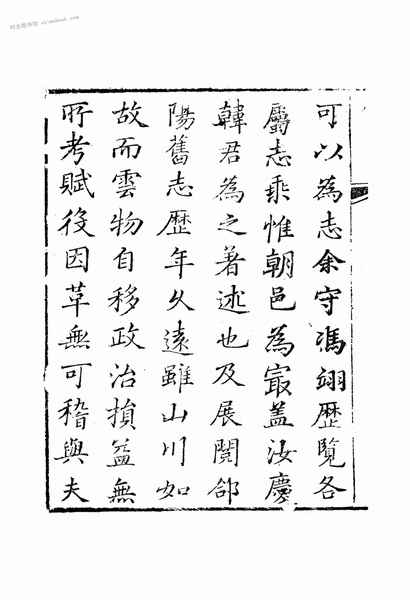 可以為志余守馮翊歷覽各
屬志乘惟朝邑為㝡盖汝慶
韓君為之著述也及展閱郃
陽舊志歷年乆遠雖山川如
故而雲物自移政治損益無
所考賦役因革無可稽與夫